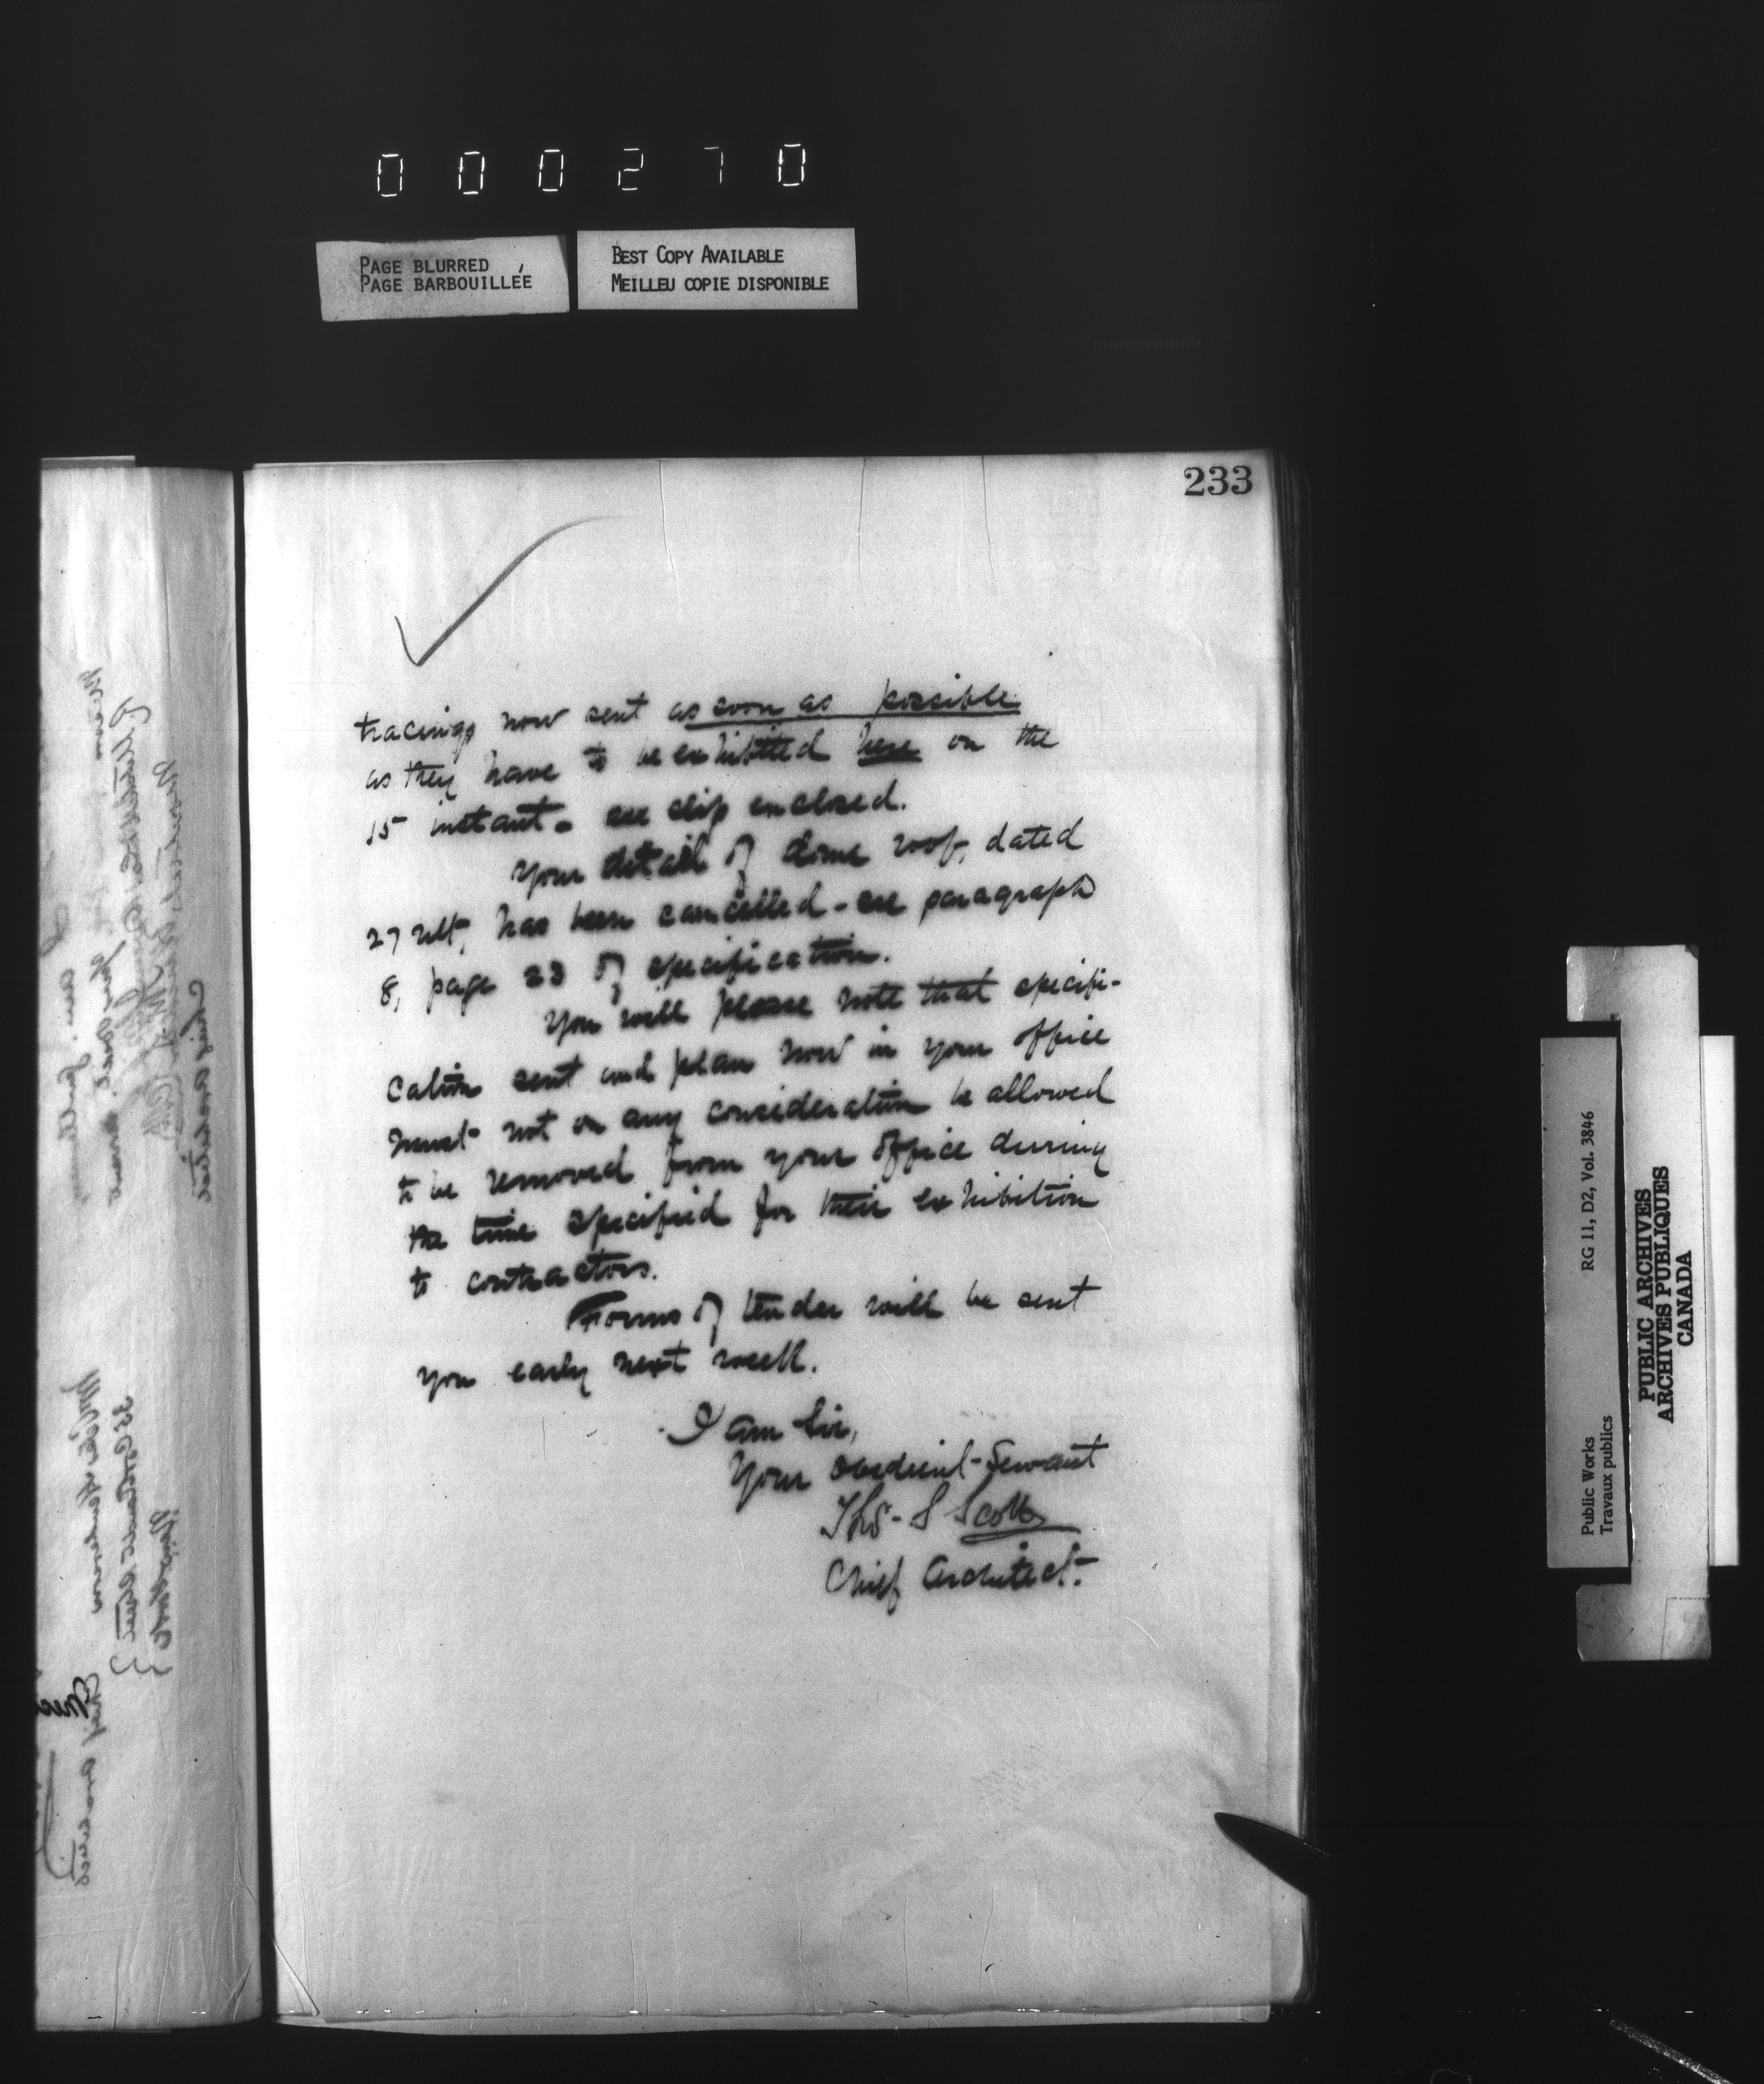 000270
PAGE BLURRED
PAGE BARBOUILLÉE
BEST COPY AVAILABLE
MEILLEU COPIE DISPONIBLE
233
tracings now sent as soon as possible
as they have to be exhibited here on the
15 instant - see slip enclosed.
Your detail of dome roof, dated
27 ult, has been cancelled - see paragraph
8, page 23 of specification.
You will please note that specifi-
cation sent and plan now in your office
must not on any consideration be allowed
to be removed from your office during
the time specified for their exhibition
to contractors.
Forms of tender will be sent
you early next week.
I am Sir,
Your obedient Servant
Thos. S Scott
Chief Architect.
Public Works
Travaux publics
RG 11, D2, Vol. 3846
PUBLIC ARCHIVES
ARCHIVES PUBLIQUES
CANADA